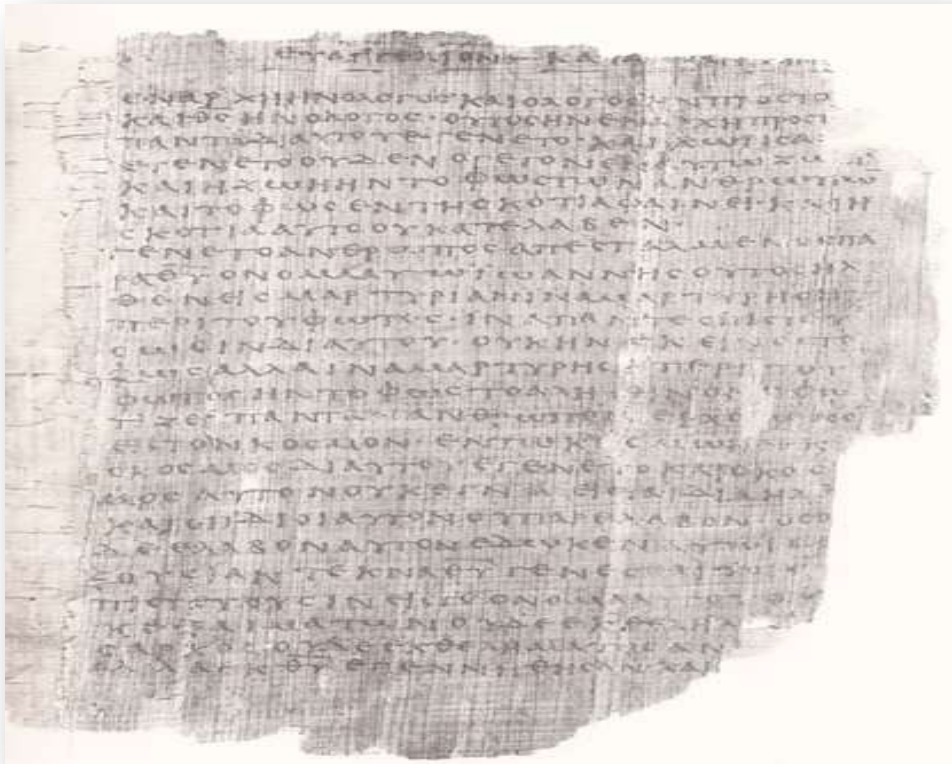 ΕΥΑΓΓΕΛΙΟΝ ΚΑΤΑ
ΕΝΑΡΧΗΗΝΟΛΟΓΟϹΚΑΙΟΛΟΓΟϹΗΝΠΡΟϹΤΟ
ΚΑΙΘϹΗΝΟΛΟΓΟϹ·ΟΥΤΟϹΗΝΕΝΑΡΧΗΠΡΟϹΤ
ΠΑΝΤΑΔΙΑΥΤΟΥΕΓΕΝΕΤΟ·ΚΑΙΧΩΡΙϹΑ
ΕΓΕΝΕΤΟΟΥΔΕΝΟΓΕΓΟΝΕΝΕΝΑΥΤΩΖΩΗ
ΚΑΙΗΖΩΗΗΝΤΟΦΩϹΤΩΝΑΝΘΡΩΠΩ
ΚΑΙΤΟΦΩϹΕΝΤΗϹΚΟΤΙΑΦΑΙΝΕΙ·ΚΑΙΗ
ϹΚΟΤΙΑΑΥΤΟΟΥΚΑΤΕΛΑΒΕΝ·
ΕΓΕΝΕΤΟΑΝΘΡΩΠΟϹΑΠΕϹΤΑΛΜΕΝΟϹΠΑ
ΡΑΘΥΟΝΟΜΑΑΥΤΩΙΩΑΝΝΗϹΟΥΤΟϹΗΛ
ΘΕΝΕΙϹΜΑΡΤΥΡΙΑΝΙΝΑΜΑΡΤΥΡΗϹΗ
ΠΕΡΙΤΟΥΦΩΤΟϹ·ΙΝΑΠΑΝΤΕϹΠΙϹΤΕΥ
ϹΩϹΙΝΔΙΑΥΤΟΥ·ΟΥΚΗΝΕΚΕΙΝΟϹΤΟ
ΦΩϹΑΛΛΑΙΝΑΜΑΡΤΥΡΗϹΗΠΕΡΙΤΟΥ
ΦΩΤΟϹΗΝΤΟΦΩϹΤΟΑΛΗΘΙΝΟΝΟΦΩ
ΤΙΖΕΙΠΑΝΤΑΑΝΘΡΩΠΟΝΕΡΧΟΜΕΝΟΝ
ΕΙϹΤΟΝΚΟϹΜΟΝ·ΕΝΤΩΚΟϹΜΩΗΝ
ΟΚΟϹΜΟϹΔΙΑΥΤΟΥΕΓΕΝΕΤΟΚΑΙΟΚΟϹ
ΜΟϹΑΥΤΟΝΟΥΚΕΓΝΩΕΙϹΤΑΙΔΙΑΗΛ
ΚΑΙΟΙΙΔΙΟΙΑΥΤΟΝΟΥΠΑΡΕΛΑΒΟΝΟϹΟ
ΔΕΕΛΑΒΟΝΑΥΤΟΝΕΔΩΚΕΝΑΥΤΟΙϹΕ
ΞΟΥϹΙΑΝΤΕΚΝΑΘΥΓΕΝΕϹΘΑΙΤΟΙϹ
ΠΙϹΤΕΥΟΥϹΙΝΕΙϹΤΟΟΝΟΜΑΑΥΤΟΥ
ΟΥΔΕΕΚΘΕΛΗΜΑ
ϹΑΡΚΟϹΟΥΔΕΕΚΘΕΛΗΜΑΤΟϹΑΝ
ΕΚΘΥΕΓΕΝΝΗΘΗϹΑΝ